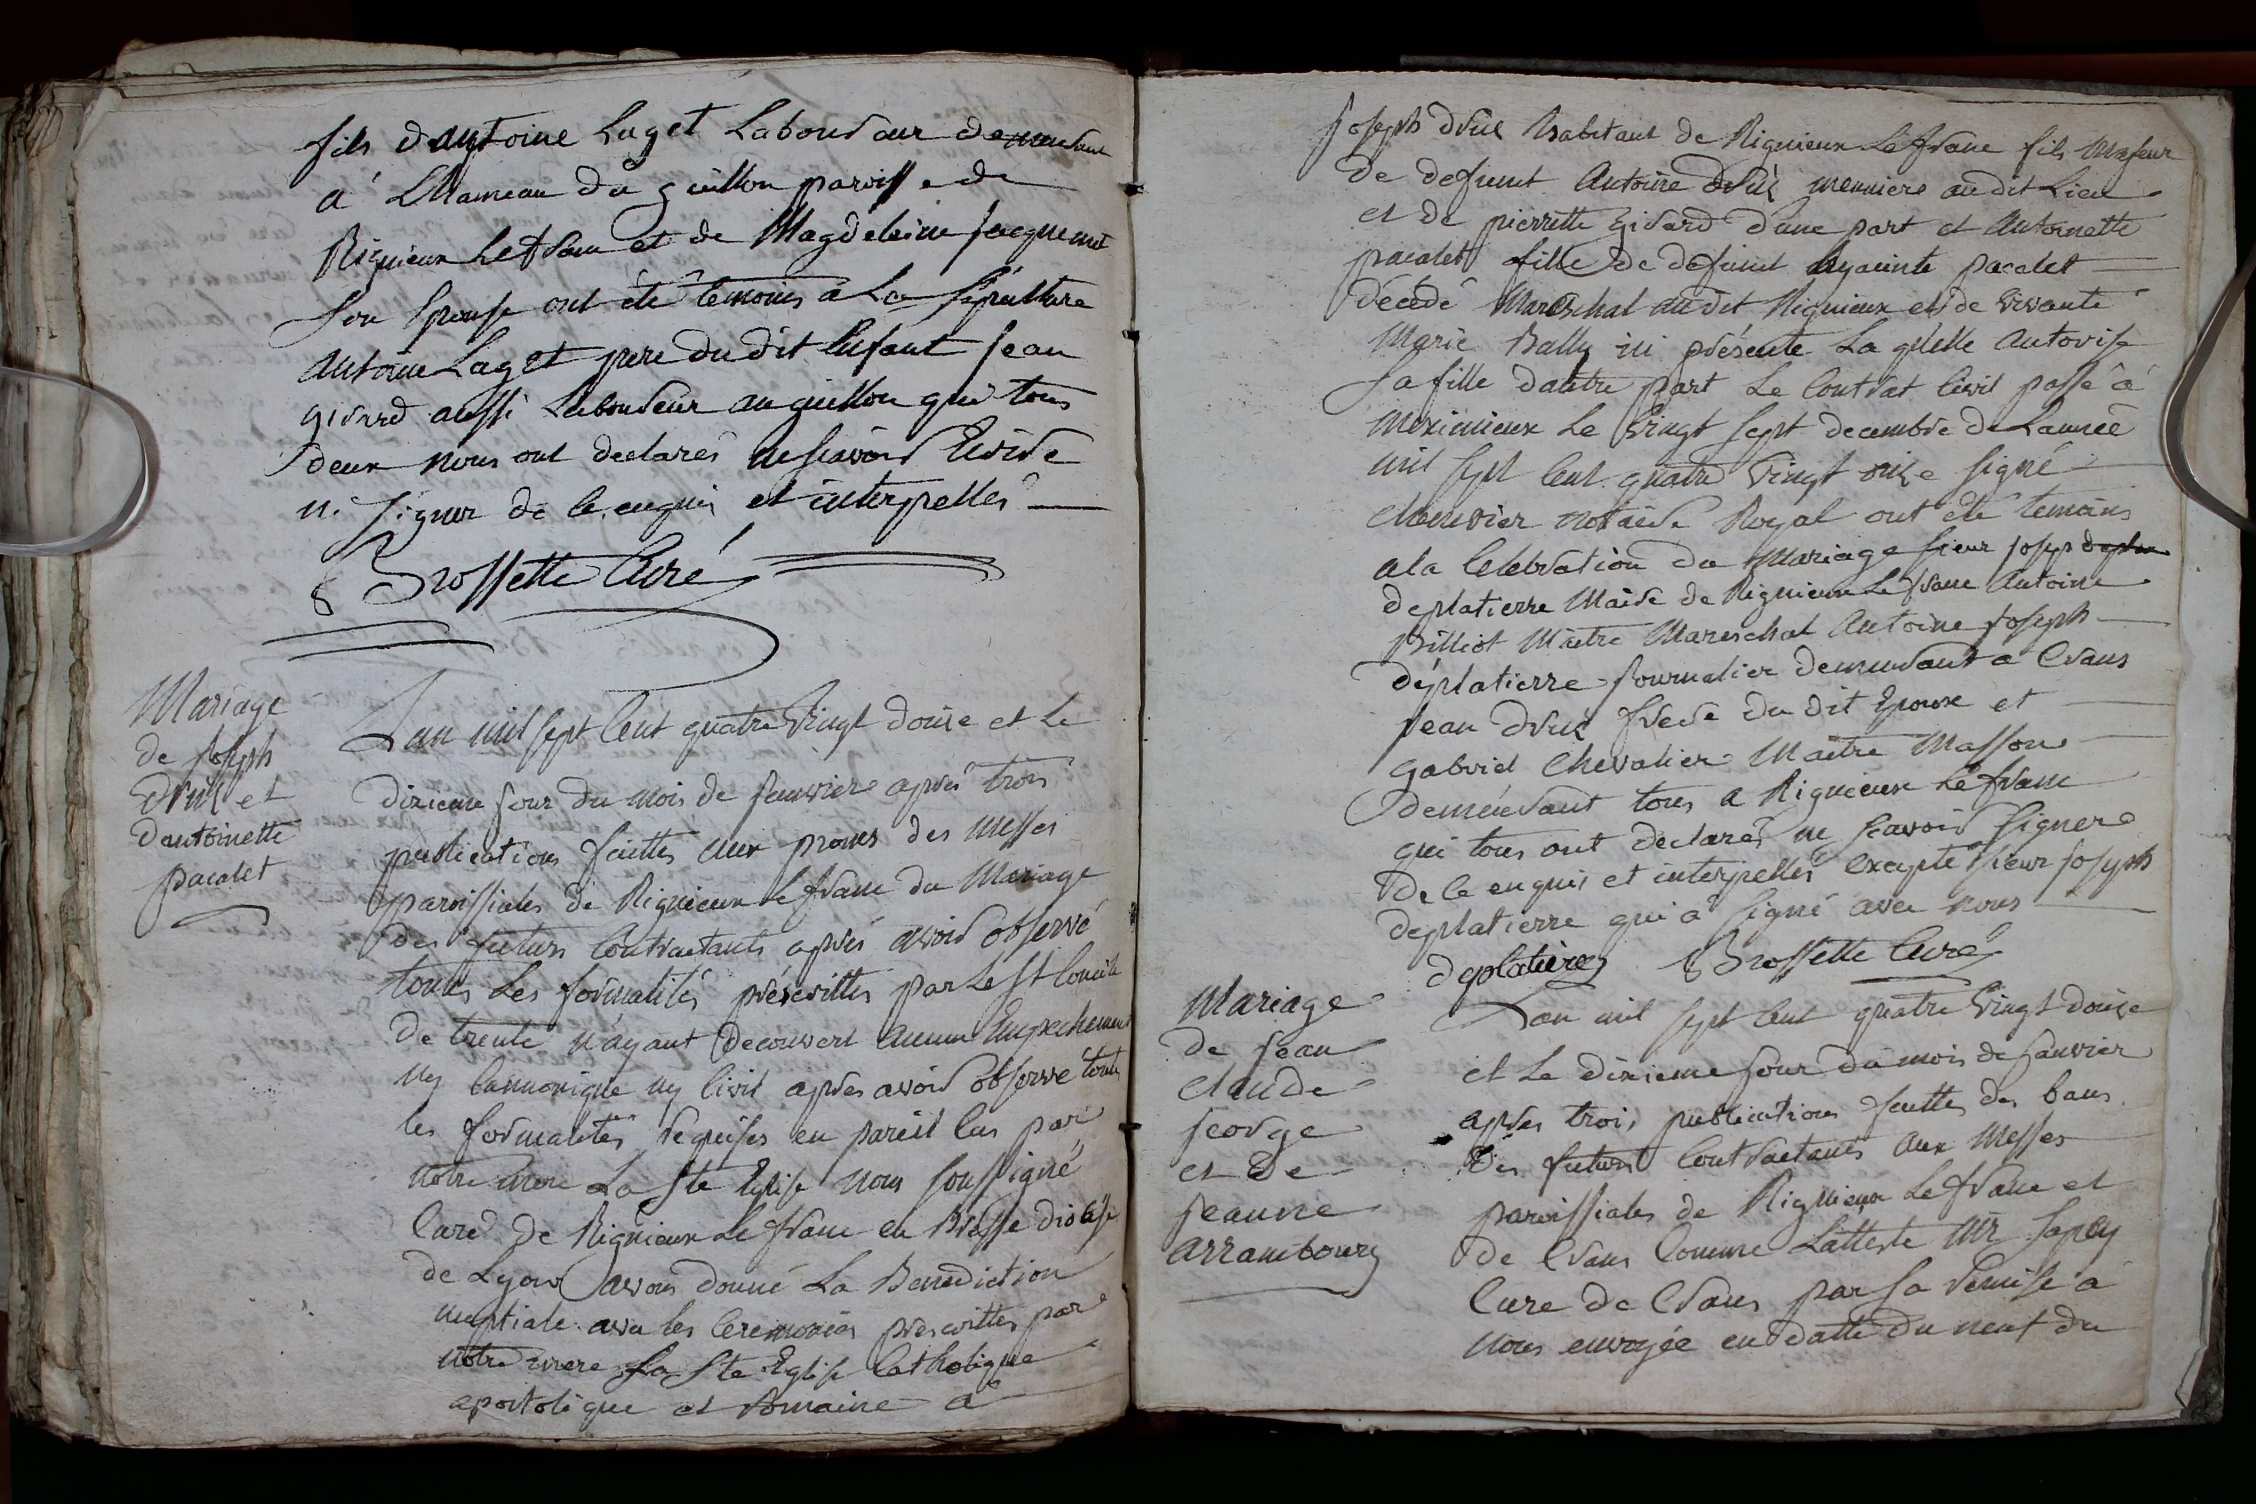 fils dantoine Laget Laboureur demeurant
a' Lhameau du guillon paroisse de
Rignieux Lefranc et de Magdeleine jacquemet
son Epouse ont été temoins a La sepulture
Antoine Laget pere du dit Enfant jean
girard aussi Laboureur au guillon qui tous
deux nous ont declarés ne scavoir Ecrire
n. signer de ce enquis et interpellés
Brossette Curé
Mariage
de joseph
Druz et
dantoinette
pacalet
Lan mil sept Cent quatre Vingt douze et Le
dixieme jour du mois de janvier aprés trois
publications faittes aux prones des messes
paroissiales de Rignieux Le franc du Mariage
des futurs Contractants aprés avoir observé
toutes Les formalités préscrittes par Le St Concile
de trente n'ayant decouvert aucun Empechement
ny Cannonique ny Civil aprés avoir observe toutes
les formalités requises en pareil Cas par
notre mere La Ste Eglise nous soussigné
Curé de Rignieux Le franc en Bresse diocése
de Lyon avons donné La Benediction
nuptiale avec les Ceremonies prescrittes par
notre mere La Ste Eglise Catholique
apostolique et Romaine a
joseph druz habitant de Rignieux Le franc fils majeur
de defunt Antoine druz meuniere audit Lieu
et de pierrette Girard dune part et Antoinette
pacalet fille de defunt hyacinte pacalet
décédé Mareschal audit Rignieux et de vivante
Marie Bally ici présente La qu'elle autorise
sa fille dautre part Le Contrat Civil passé a
meximieux Le Vingt sept decembre de Lannée
mil sept Cent quatre Vingt onze signé
notaire Royal ont été temoins
a la Celebration du Mariage sieur josep
deplatierre Maire de Rignieux Le franc Antoine
Billiot Maitre Mareschal Antoine joseph
déplatierre journalier demeurant a Crans
jean druz frere du dit Epoux et
gabriel Chevalier Maitre Masson
demeurant tous a Rignieux Le franc
qui tous ont declarés ne scavoir signer
de ce enquis et interpellés excepté sieur joseph
deplatierre qui a signé avec nous
deplatiere Brossette Curé
Mariage
de jean
claude
jeorge
et de
jeanne
arrambourg
Lan mil sept Cent quatre Vingt douze
et Le dixieme jour du mois de janvier
aprés trois publications faittes des bans
des futurs Contractants aux Messes
paroissiales de Rignieux Le franc et
de Crans Comme Latteste Mr sapey
Cure de Crans par sa remise a
nous envoyée en datte du neuf du